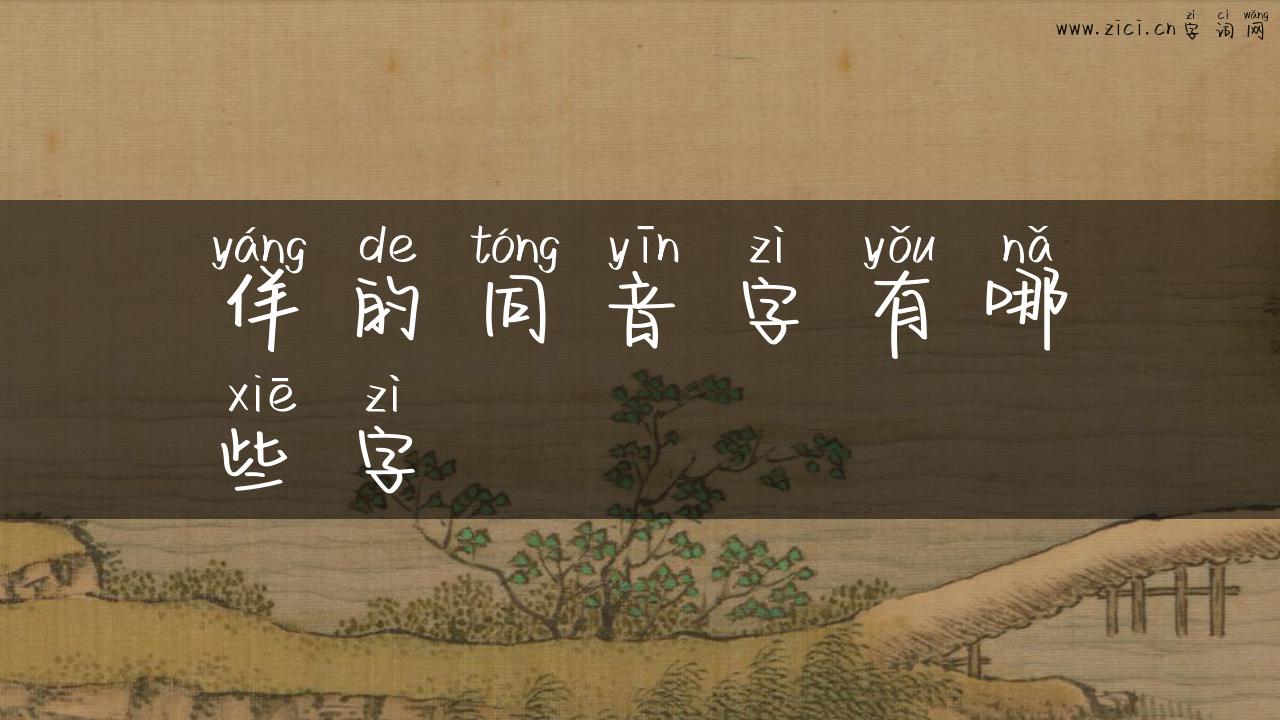 zì cí wǎng
www.zici.cn 字 词 网
yáng de tóng yīn zì yǒu nǎ
佯 的 同 音 字 有 哪
xiē zì
些 字